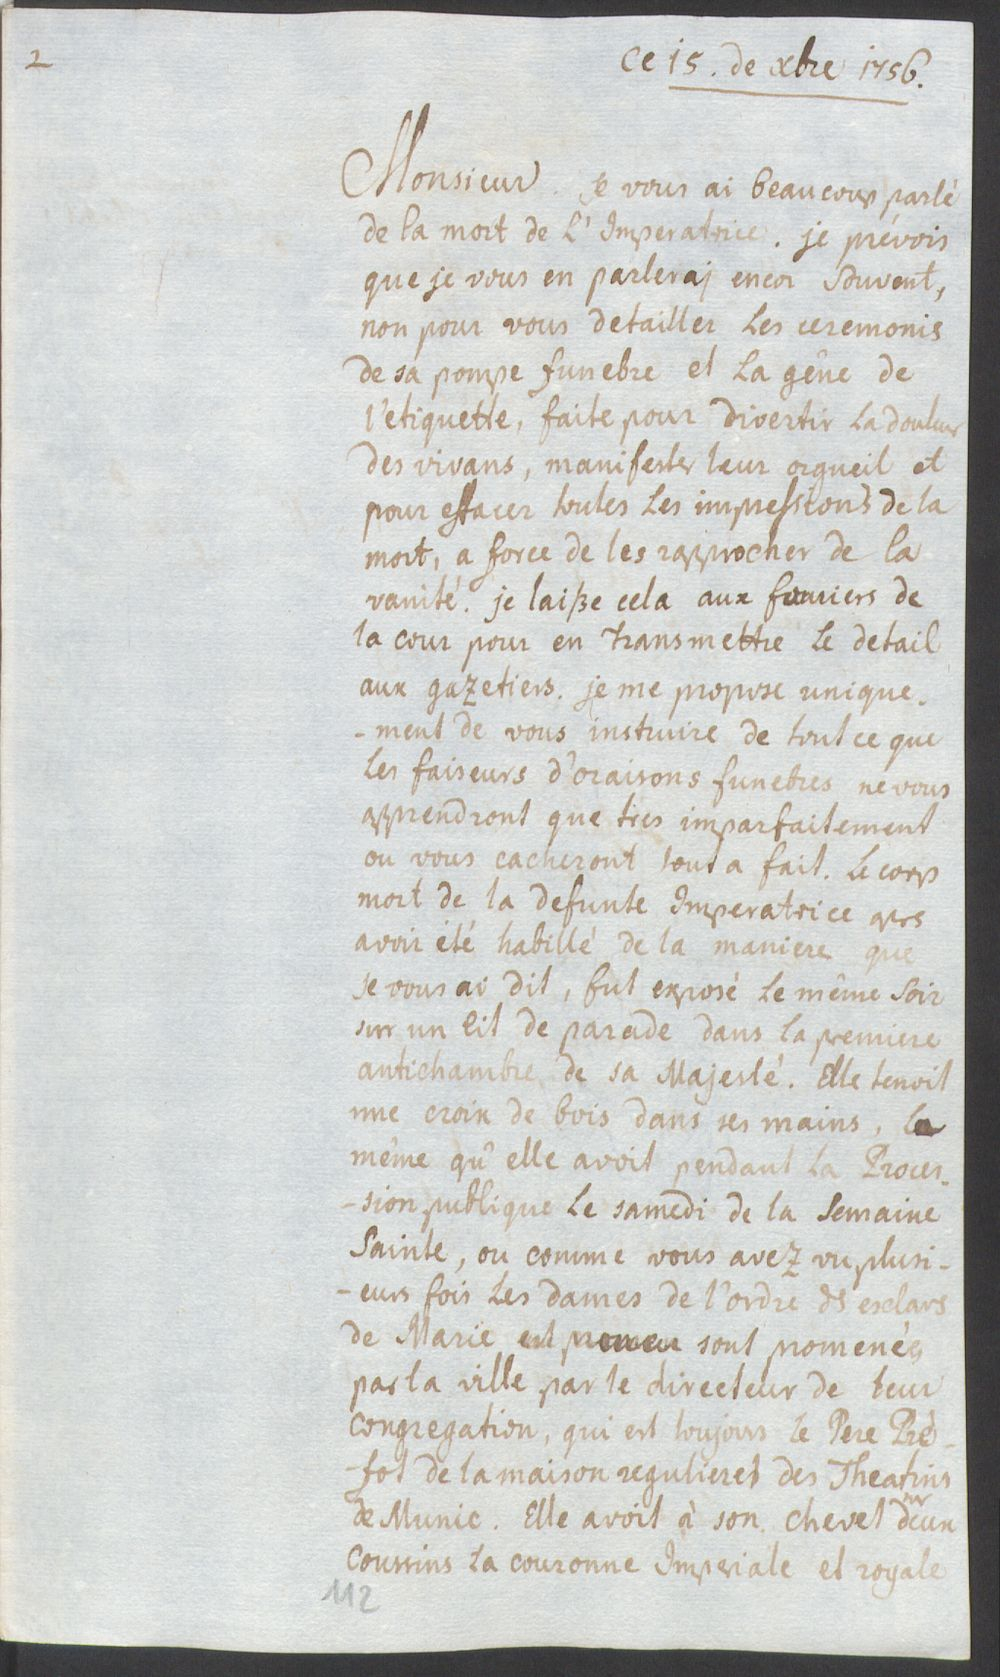 2
Ce 15. de xbre 1756.
Monsieur. Je vous ai beaucoup parlé
de la mort de L'Imperatrice. je prévois
que je vous en parleraj encor souvent,
non pour vous detailler les ceremonis
de sa pompe funebre et la gêne de
l'etiquette, faite pour divertir la douleur
des vivans, manifester leur orgueil et
pour effacer toutes les impressions de la
mort, a force de les rapprocher de la
vanité. je laisse cela aux fouriers de
la cour pour en transmettre le detail
aux gazetiers. je me propose unique-
-ment de vous instruire de tout ce que
les faiseurs d'oraisons funebres ne vous
apprendront que tres imparfaitement
ou vous cacheront tout a fait. Le corps
mort de la defunte Imperatrice aprs
avoir été habillé de la maniere que
je vous ai dit, fut exposé le même soir
sur un lit de parade dans la premiere
antichambre de sa Majesté. Elle tenoit
une croix de bois dans ses mains, la
même qu'elle avoit pendant la Proces-
-sion publique le samedi de la Semaine
Sainte, ou comme vous avez vu plusi-
-eurs fois les dames de l'ordre ds esclavs
de Marie sont promenées
par la ville par le directeur de leur
congregation, qui est toujours le Pere Pré-
-fot de la maison reguliere des Theatins
de Munic. Elle avoit à son chevet sur deux
coussins la couronne Imperiale et royale
112